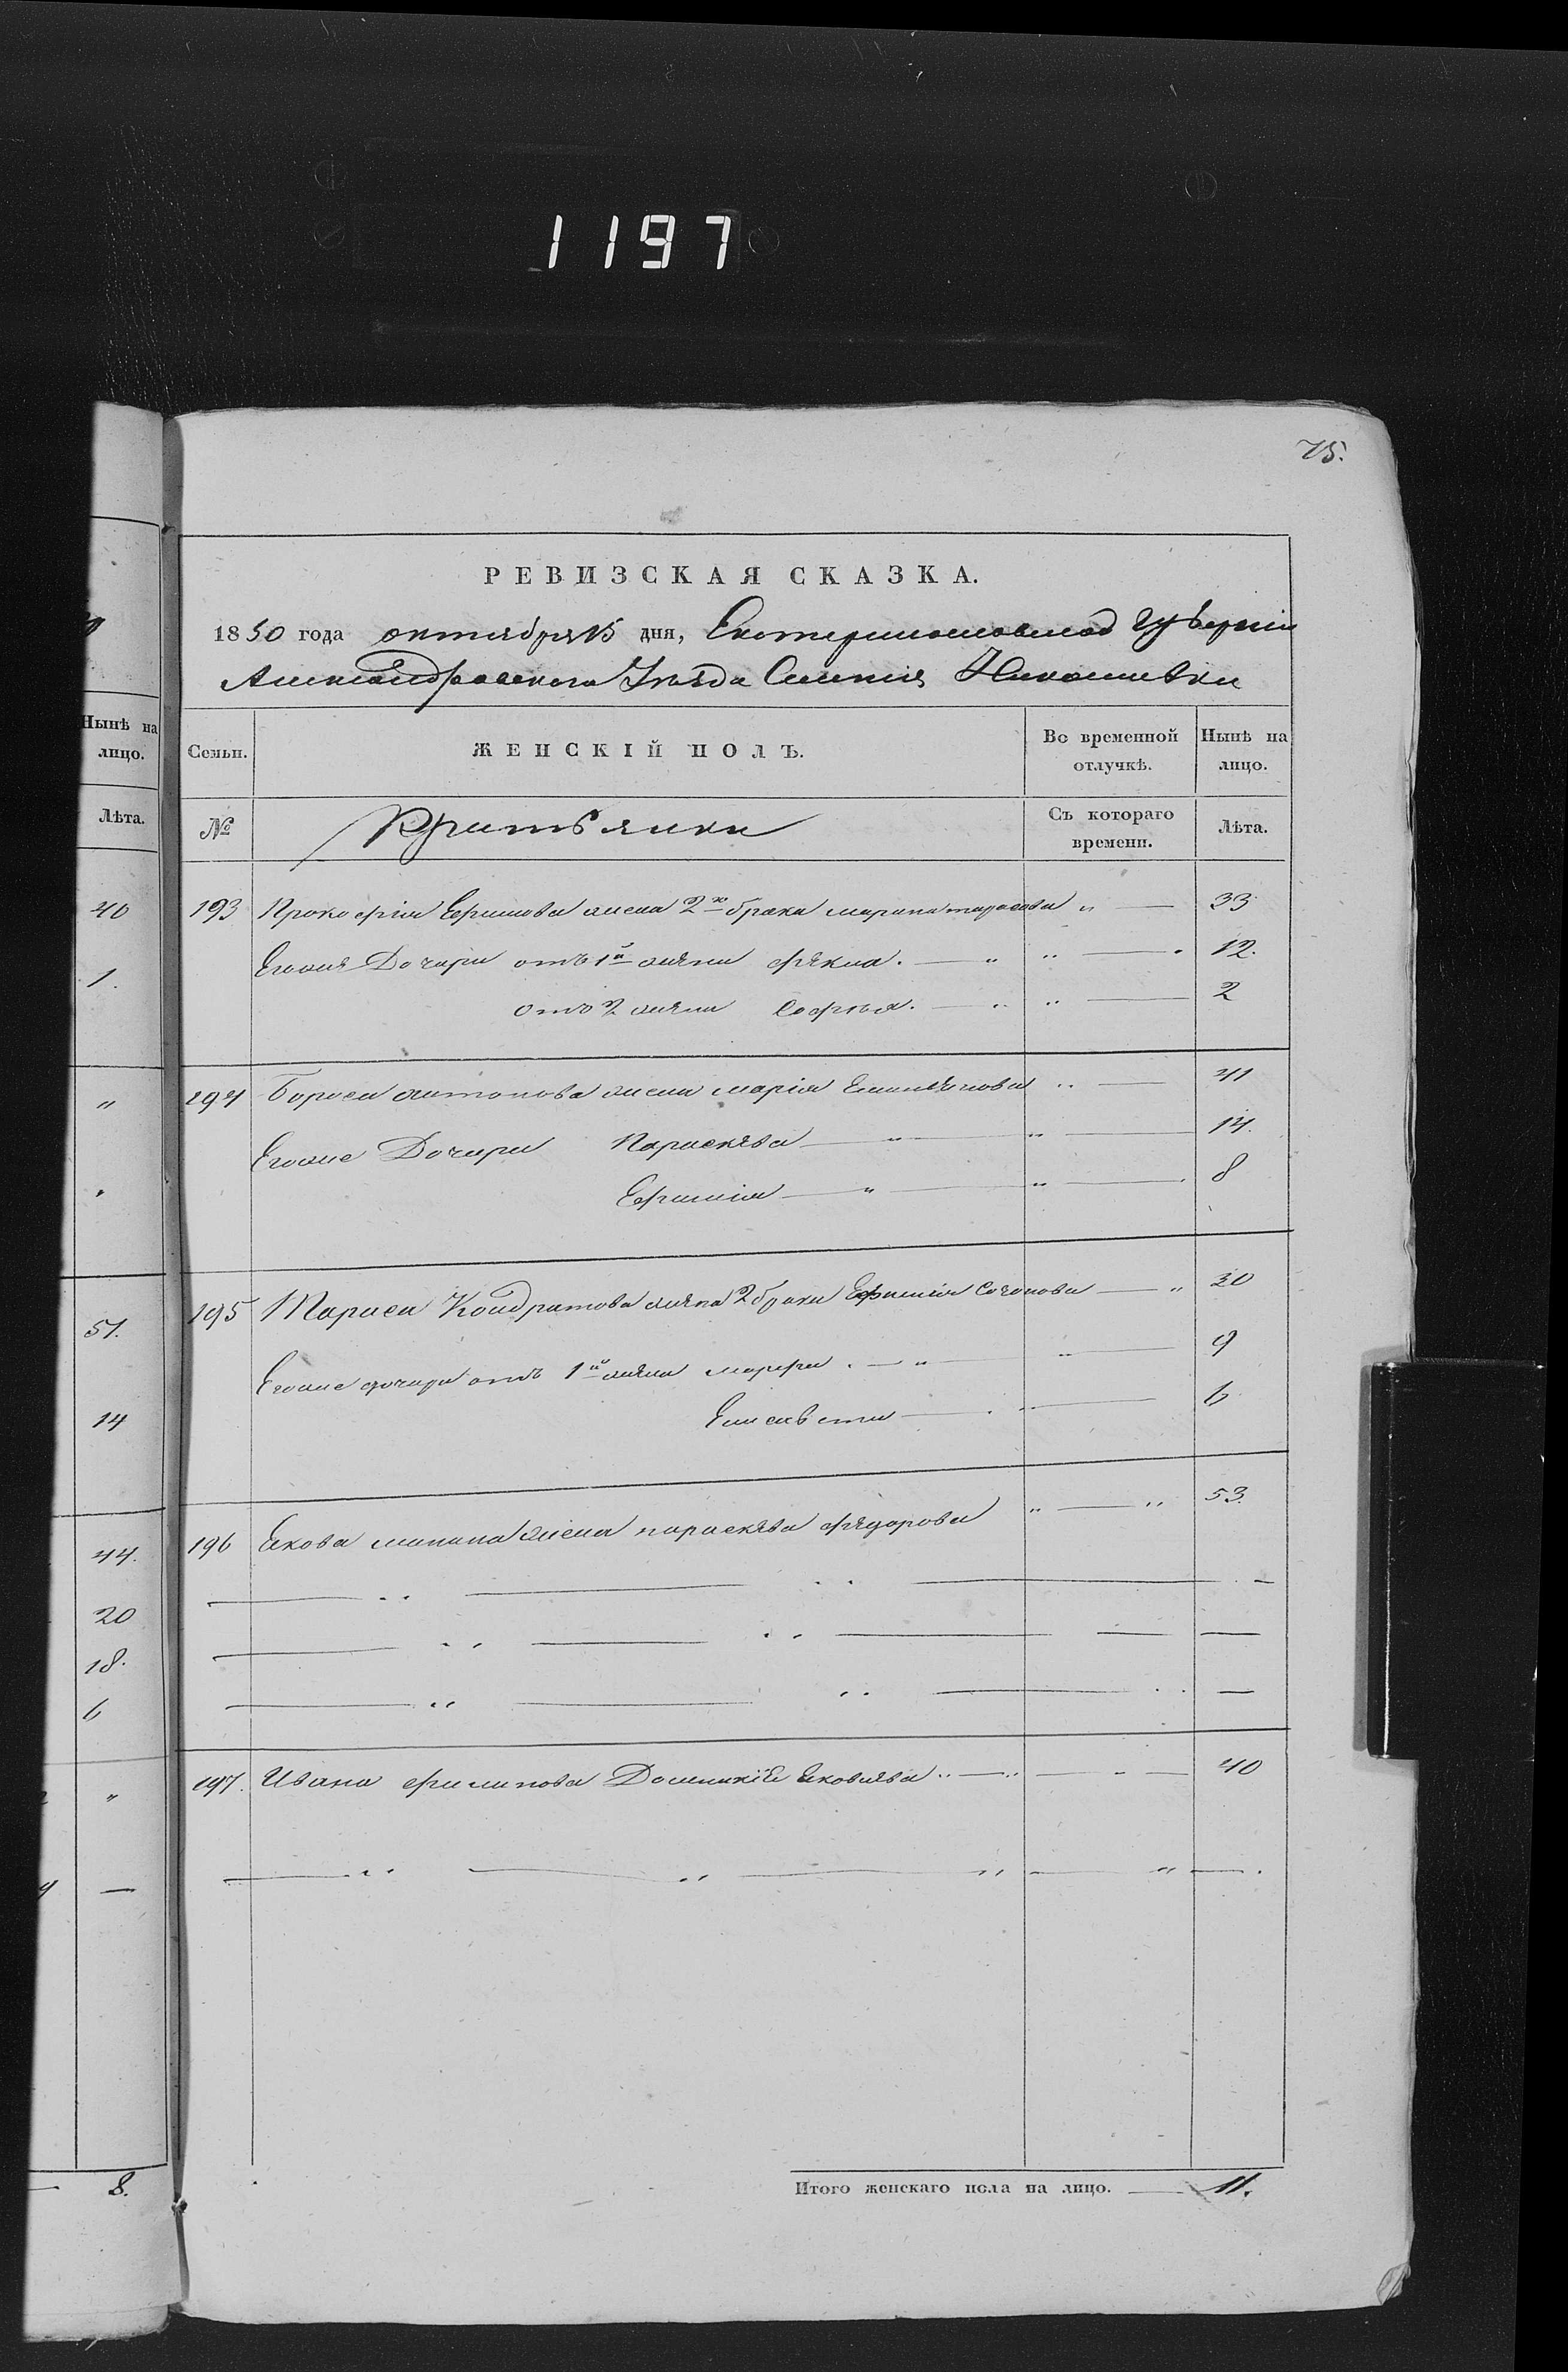 1197
75.
РЕВИЗСКАЯ СКАЗКА.
1850 года октября 15 дня, Екатеринославской Губернии
Александровского Уезда Селения Николаевки
Нынѣ на лицо.
Лѣта.
40
1.
"
"
51.
14
44.
20
18.
6
"
—
8.
Семьи. ЖЕНСКІЙ ПОЛЪ. Во временной отлучкѣ. Нынѣ на лицо.
№ Съ котораго времени. Лѣта.
193 Прокофія Ефимова жена 2го брака марина тарасова " — 33
Егожя Дочери отъ 1й жяни фякла. — " " — 12.
отъ 2 жяни Софья. — " " — 2
194 Бориса антонова жена марія Емильянова " — 41
Егоже Дочери Параскява — " — " — 14.
Ефимія — " — " — 8
195 Тараса Кондратова жяна 2 брака Ефимія — " 30
Егоже дочери отъ 1й жяни марфа . — " — " — 9
Елисавета — " — 6
196 Екова минина жена параскява фядорова " — " 53.
197. Ивана филипова Домникіе Ековлява " — " — " — 40
Итого женскаго пола на лицо. — 11.